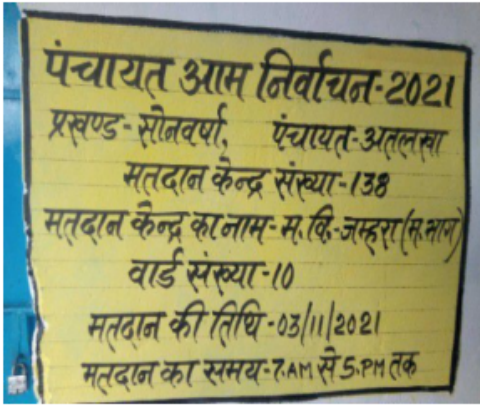 पंचायत आम निर्वाचन-2021
प्रखण्ड-सोनवर्षा, पंचायत-अतलखा
मतदान केन्द्र संख्या-138
मतदान केन्द्र का नाम-म.वि.-जम्हरा(मु.भाग)
वार्ड संख्या-10
मतदान की तिथि-03/11/2021
मतदान का समय-7.AM से 5.PM तक